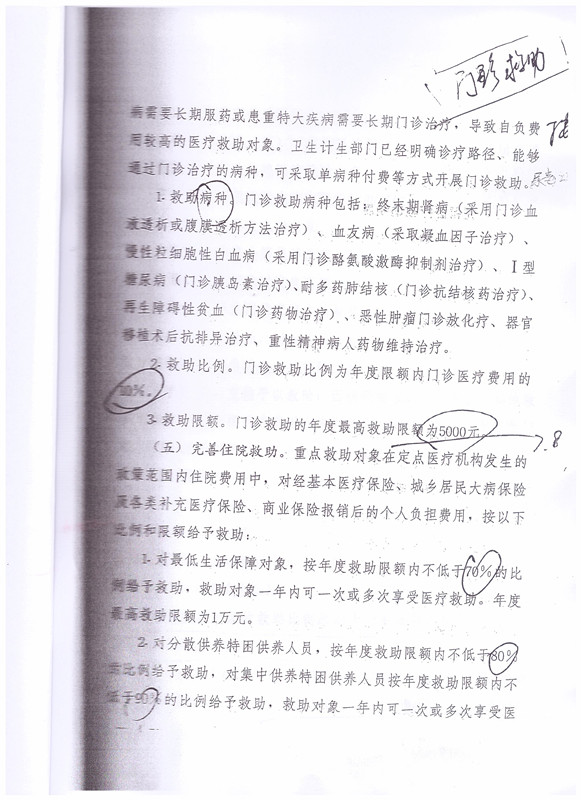 门诊救助
病需要长期服药或患重特大疾病需要长期门诊治疗，导致自负费
用较高的医疗救助对象。卫生计生部门已经明确诊疗路径、能够
通过门诊治疗的病种，可采取单病种付费等方式开展门诊救助。
1. 救助病种。门诊救助病种包括：终末期肾病（采用门诊血
液透析或腹膜透析方法治疗）、血友病（采取凝血因子治疗）、
慢性粒细胞性白血病（采用门诊酪氨酸激酶抑制剂治疗）、Ⅰ型
糖尿病（门诊胰岛素治疗）、耐多药肺结核（门诊抗结核药治疗）、
再生障碍性贫血（门诊药物治疗）、恶性肿瘤门诊放化疗、器官
移植术后抗排异治疗、重性精神病人药物维持治疗。
2. 救助比例。门诊救助比例为年度限额内门诊医疗费用的
3. 救助限额。门诊救助的年度最高救助限额为5000元
（五）完善住院救助。重点救助对象在定点医疗机构发生的
政策范围内住院费用中，对经基本医疗保险、城乡居民大病保险
及各类补充医疗保险、商业保险报销后的个人负担费用，按以下
比例和限额给予救助：
1. 对最低生活保障对象，按年度救助限额内不低于70%的比
例给予救助，救助对象一年内可一次或多次享受医疗救助。年度
最高救助限额为1万元。
2. 对分散供养特困供养人员，按年度救助限额内不低于80%
的比例给予救助，对集中供养特困供养人员按年度救助限额内不
低于90%的比例给予救助，救助对象一年内可一次或多次享受医